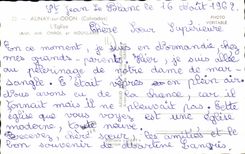 St Jean le Blanc le 16 août 1962.
AUNAY-sur-ODON (Calvados)
L'Église
PHOTO
VÉRITABLE
Chère Sœur Supérieure
En ce moment, je suis en Normandie chez
mes grands-parents. Hier, je suis allée
au pèlerinage de notre dame de
C'était une messe en plein air.
Nous avons eu de la chance, car il
tonnait mais il ne pleuvait pas. Cette
église que vous voyez est une église
moderne, toute neuve.
Recevez, chère sœur, les amitiés et le
bon souvenir de Martine